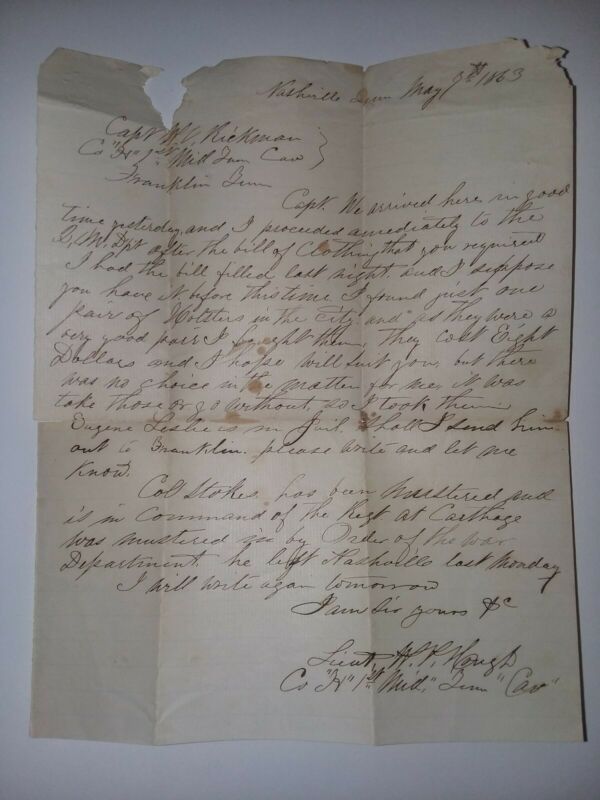 Nashville Tenn May 9th 1863
Capt W.C. Rickman
Co "H" 1st Mid Tenn Cav }
Franklin Tenn
Capt. We arrived here in good
time yesterday, and I proceded amediately to the
Q.M. Dpt after the bill of Clothing that you required
I had the bill filled last night. and I suppose
you have it before this time. I found just one
pair of Holsters in the city and as they were a
very good pair I bought them, they cost Eight
Dollars and I hope will suit you, but there
was no choice in the matter for me, it was
take those or go without, so I took them
Eugene Leslie is in Jail. Shall I send him
out to Franklin. please write and let me
know.
Col Stokes has been mustered and
is in command of the Regt at Carthage
was mustered in by Order of the War
Department. he left Nashville last Monday
I will write again tomorrow
I am Sir yours &c
Lieut. H. P. Hough
Co "H" 1st "Mid," Tenn "Cav"